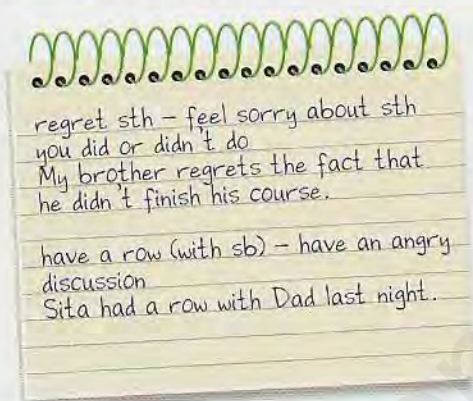 regret sth – feel sorry about sth
you did or didn't do
My brother regrets the fact that
he didn't finish his course.
have a row (with sb) – have an angry
discussion
Sita had a row with Dad last night.